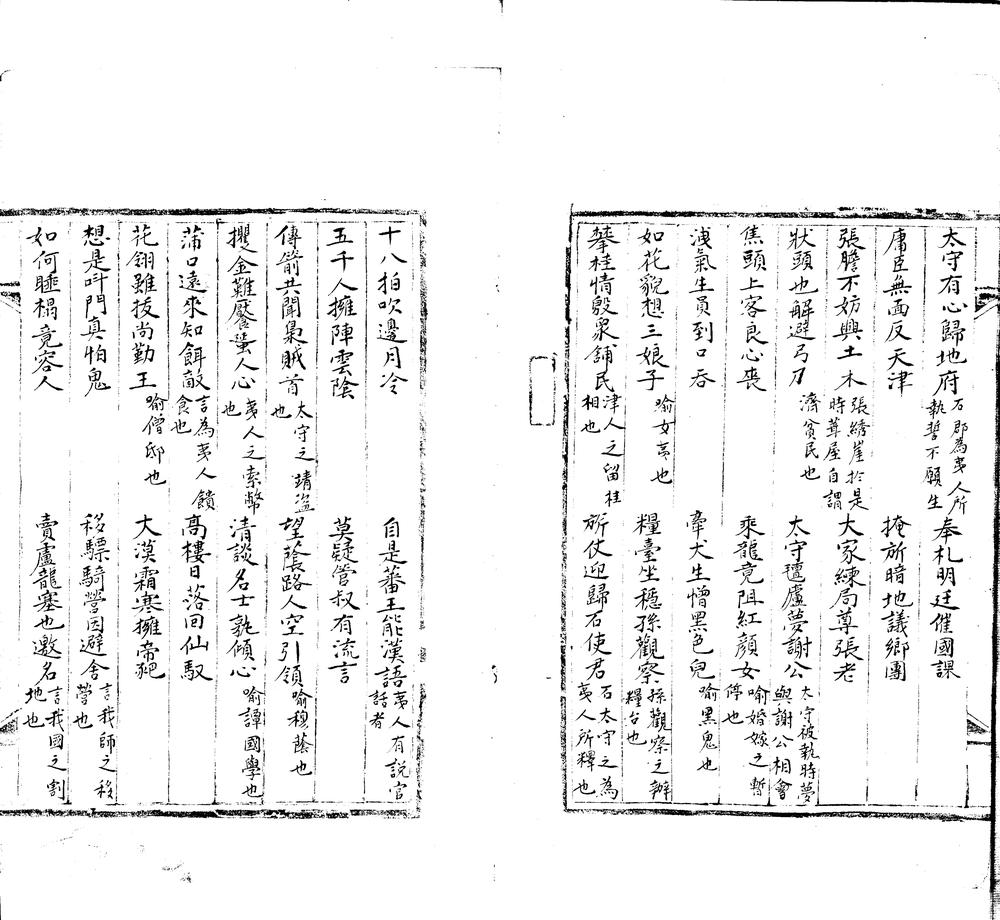 太守有心歸地府石郡為夷人所執誓不願生奉札明廷催國課
庸臣無面反天津掩所暗地議鄉團
張膽不妨興土木張繡崖於是時葺屋自謂大家練局尊張老
狀頭也解避弓刀濟貧民也太守氊廬夢謝公太守被執時夢與謝公相會
焦頭上客良心喪乘龍竟阻紅顏女喻婚嫁之暫停也
洩氣生員到口吞牽犬生憎黑色兒喻黑鬼也
如花貌想三娘子喻女亯也糧臺坐穩孫觀察孫觀察之辦糧台也
攀桂情殷衆鋪民津人之留桂相也所仗迎歸石使君石太守之為夷人所釋也
十八拍吹邊月冷自是蕃王能漢語夷人有說官話者
五千人擁陣雲陰莫疑管叔有流言
傳箭共聞梟賊首太守之靖盜也望蔭路人空引領喻穆蔭也
攫金難饜蜑人心夷人之索幣也清談名士孰傾心喻譚國學也
蒲口遠來知餌敵言為夷人饋食也高樓日落回仙馭
花翎雖拔尚勤王喻僧邸也大漠霜寒擁帝靶
想是叫門真怕鬼移驃騎營因避舍言我師之移營也
如何睡榻竟容人賣盧龍塞也邀名言我國之割地也